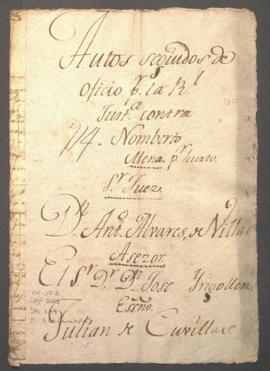 Autos seguidos de
oficio pr. la Rl.
Justa. contra
Norberto
Mena pr. hurto.
Sr. Juez
Dn. Anto. Alvares, de Villa
Asezor
El Sr. Dr. Dn. Jose
Essno.
Julian de Cuvillas